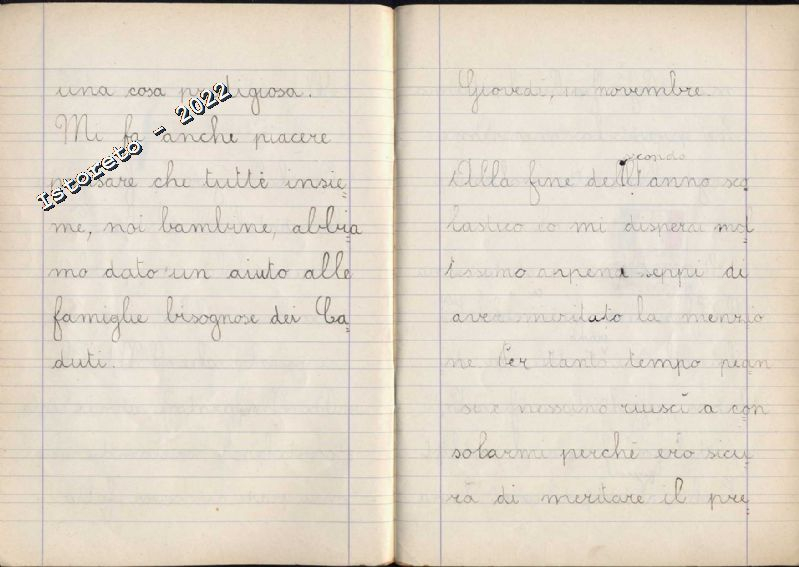 una cosa prodigiosa.
Mi fa anche piacere
pensare che tutte insie
me, noi bambine, abbia
mo dato un aiuto alle
famiglie bisognose dei Ca
duti.
Istoreto - 2022
Giovedì, 11 novembre.
scondo
Alla fine dell'anno sco
lastico io mi disperai mol
tissimo appena seppi di
aver meritato la menzio
ne Per tanto tempo pian
si e nessuno riuscì a con
solarmi perchè ero sicu
ra di meritare il pre